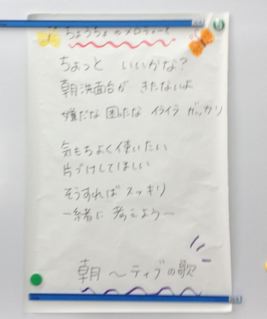 ちょうちょのメロディーで
ちょっと いいかな？
朝洗面台が きたないよ
嫌だな 困たな イライラ ガッカリ
気もちよく使いたい
片づけてほしい
そうすれば スッキリ
一緒に 考えよう
朝〜ティブの歌